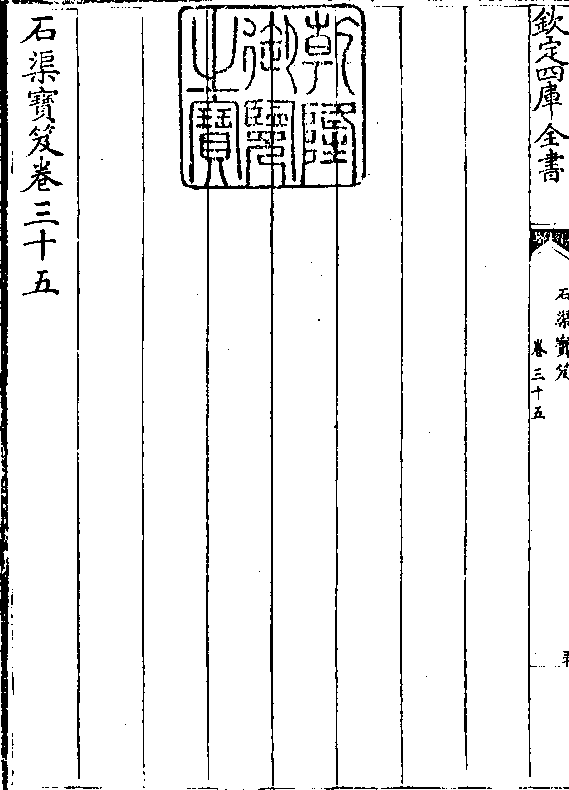 欽定四庫全書
石渠寳笈
卷三十五
乾隆
御覽
之寳
石渠寳笈卷三十五